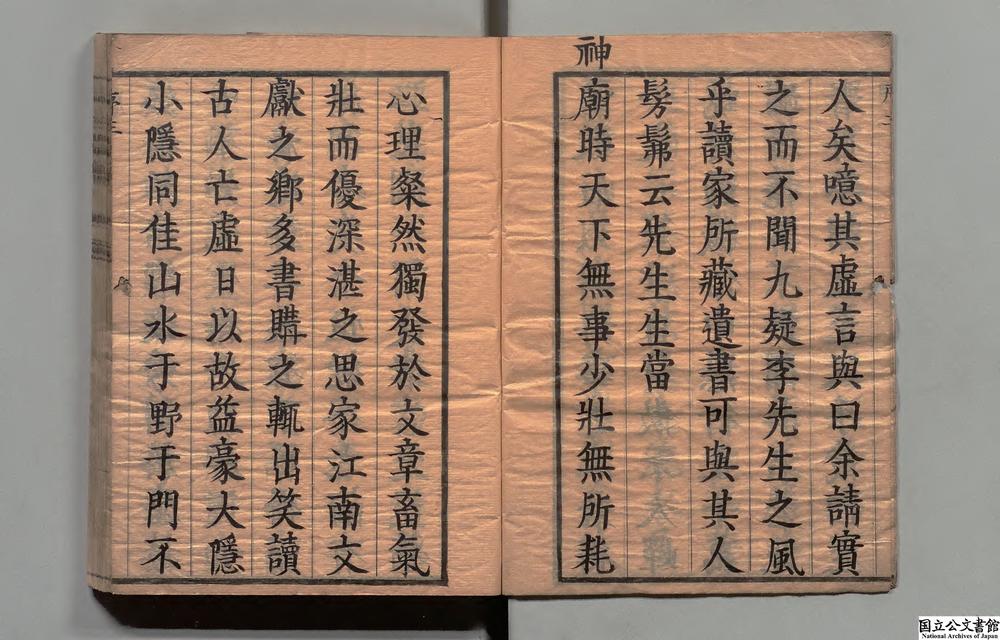 人矣噫其虛言與曰余請實
之而不聞九疑李先生之風
乎讀家所藏遺書可與其人
髣髴云先生生當
神
廟時天下無事少壯無所耗
心理粲然獨發於文章畜氣
壯而優深湛之思家江南文
獻之鄉多書購之輒出笑讀
古人亡虛日以故益豪大隱
小隱同佳山水于野于門不
国立公文書館
National Archives of Japan